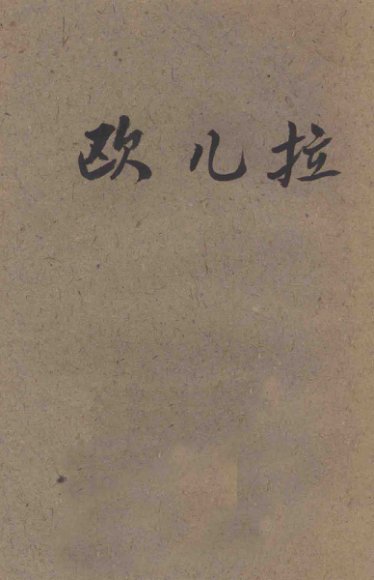 欧儿拉